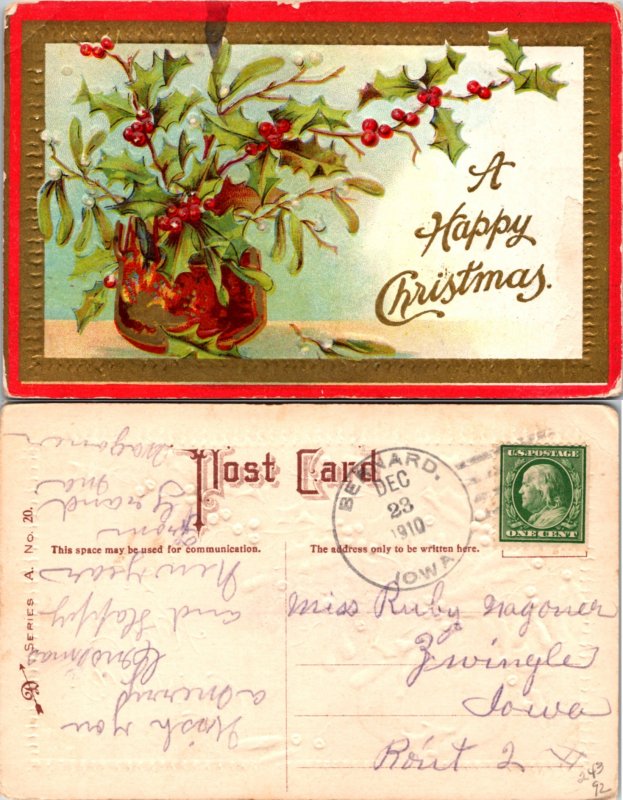 A
Happy
Christmas.
Post Card
BERNARD,
DEC
23
1910
IOWA
U.S. POSTAGE
ONE CENT
This space may be used for communication.
The address only to be written here.
SERIES A. No. 20.
Wish you
a merry
Cristmas
and Happy
New year
from
Grand
Ma
Wagoner
Miss Ruby Wagoner
Zwingle
Iowa
Rout 2
243
92